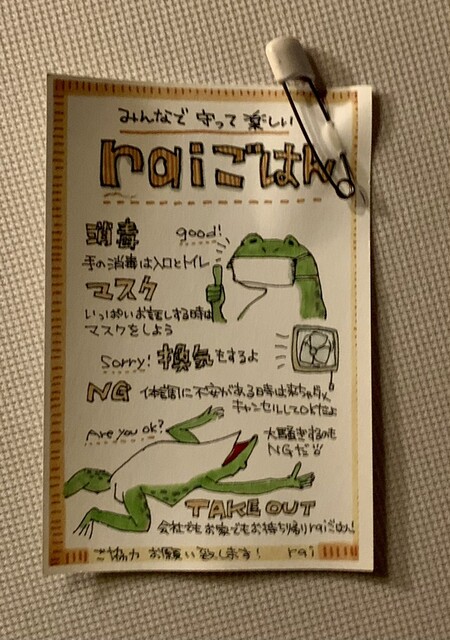 みんなで 守って 楽しい
raiごはん
消毒
good!
手の消毒は入口とトイレ
マスク
いっぱいお話しする時は
マスクをしよう
sorry! 換気をするよ
NG 体調に不安がある時は来ちゃダメ
キャンセルしてOKだよ
Are you ok?
大騒ぎするのも
NGだ
TAKE OUT
会社でもお家でもお持ち帰りraiごはん!
ご協力 お願い致します! rai